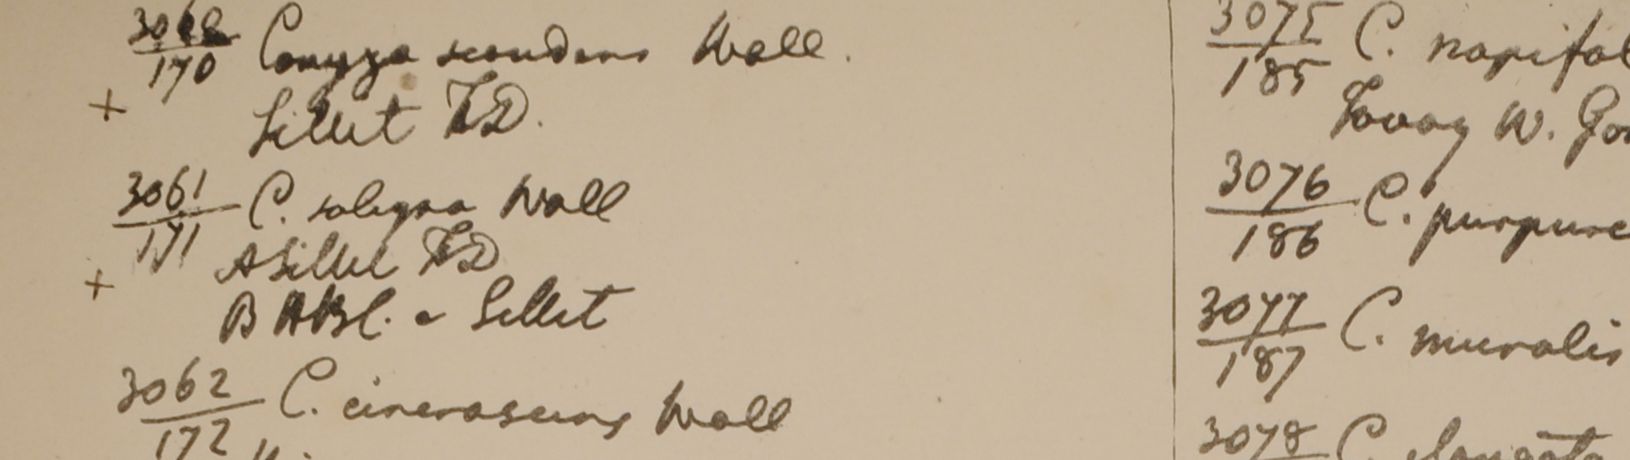 3060/170 Conyza scandens Wall.
+ Sillet FD.
3061/171 C. saligna Wall
A Sillet FD
+ B HBC. e Sillet
3062/172 C. cinerascens Wall
3075/185 C. napifol
Tavoy W. Go
3076/186 C. purpure
3077/187 C. muralis
3078 C. elongata